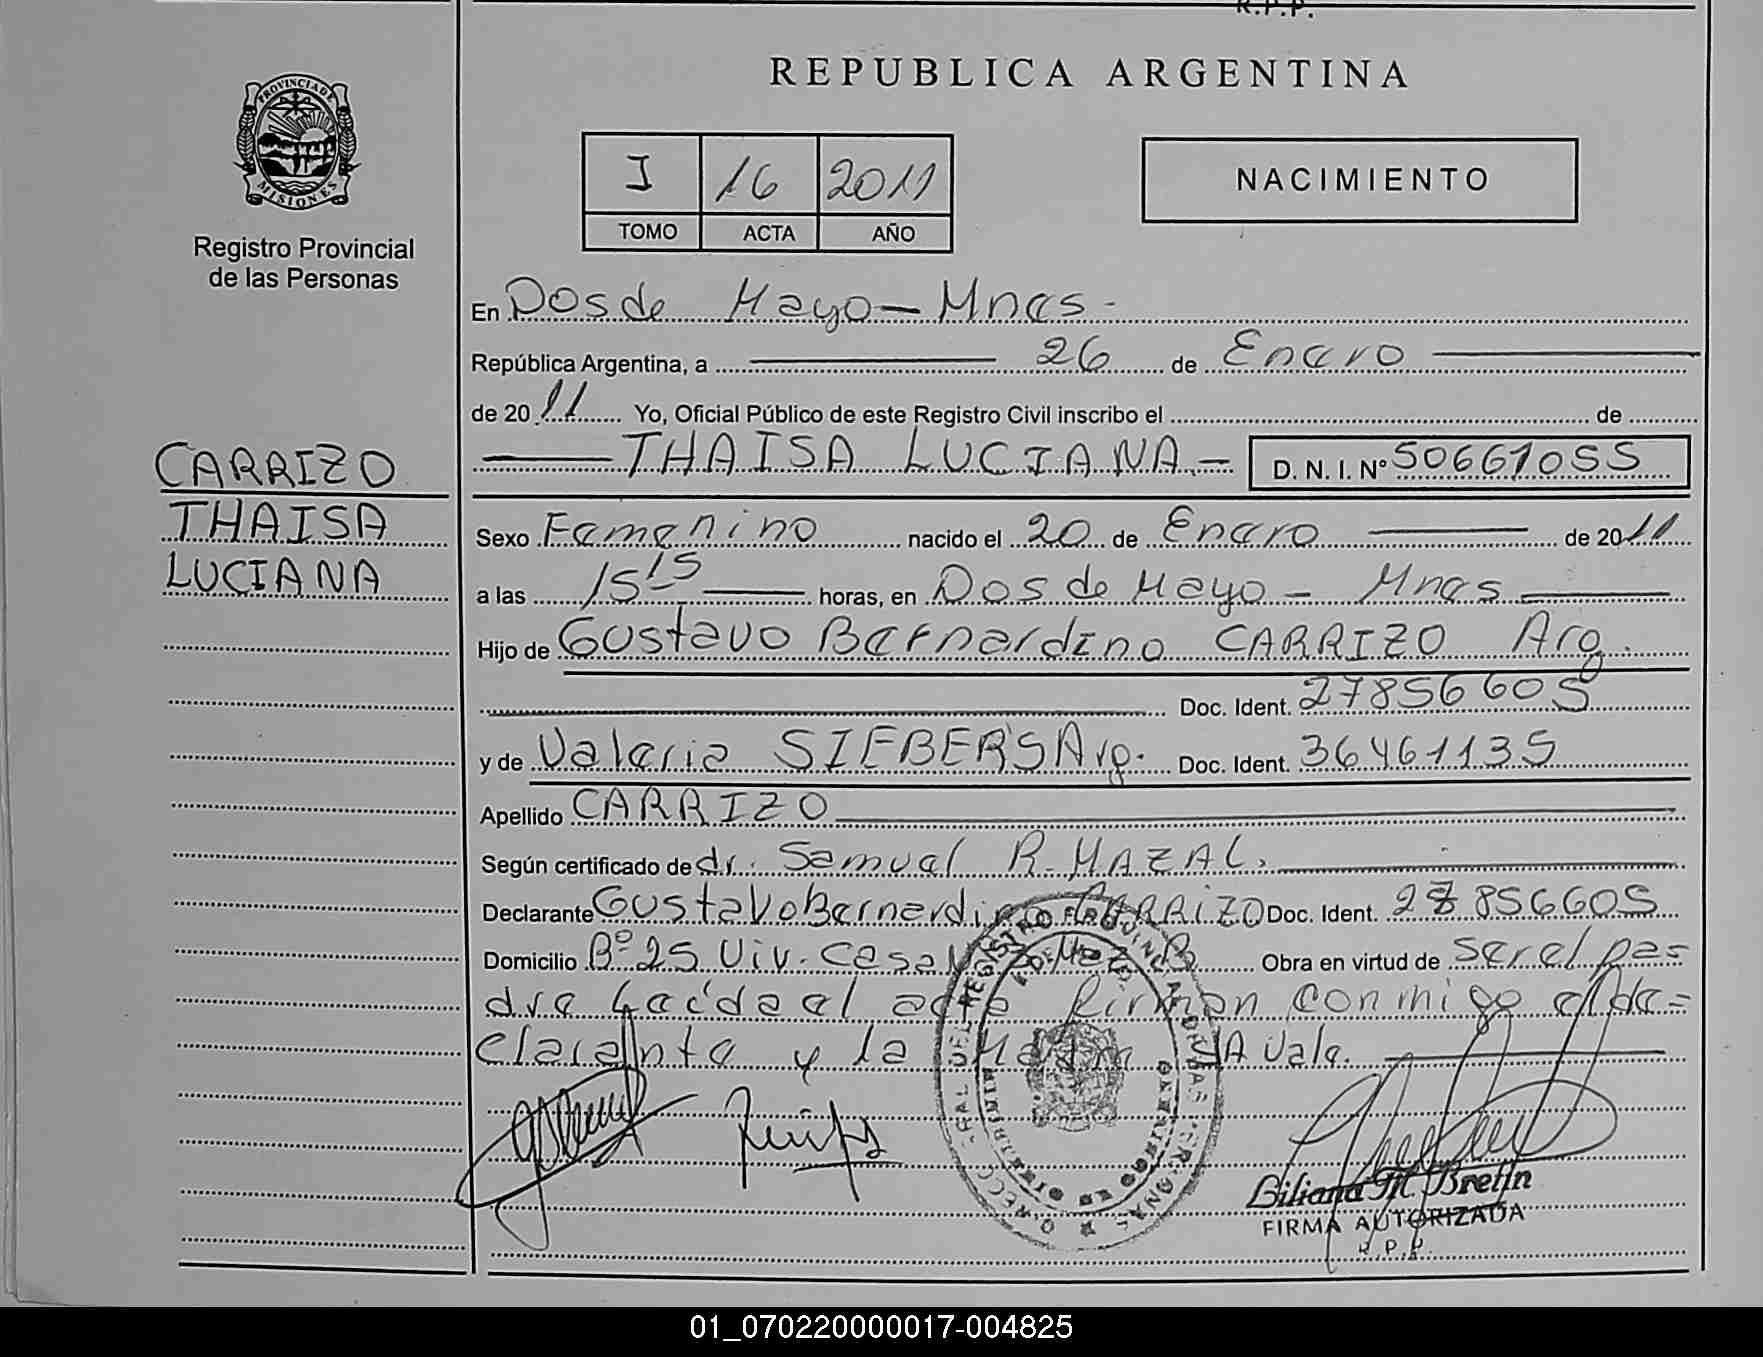 R.P.P.
REPUBLICA ARGENTINA
PROVINCIA DE
MISIONES
Registro Provincial
de las Personas
I 16 2011
TOMO ACTA AÑO
NACIMIENTO
En Dos de Mayo - Mnes -
República Argentina, a 26 de Enero
de 2011 Yo, Oficial Público de este Registro Civil inscribo el de
THAISA LUCIANA - D. N. I. Nº 50661055
CARRIZO
THAISA
LUCIANA
Sexo Femenino nacido el 20 de Enero de 2011
a las 15 15 horas, en Dos de Mayo - Mnes
Hijo de Gustavo Bernardino CARRIZO Arg.
Doc. Ident. 27856605
y de Valeria SIEBERS Arg. Doc. Ident. 36461135
Apellido CARRIZO
Según certificado de dr. Samuel R. MAZAL.
Declarante Gustavo Bernardino CARRIZO Doc. Ident. 27856605
Domicilio Bº 25 Viv. Casa Obra en virtud de ser el pa=
dre Leída el acta firman conmigo el de=
clarante y la Madre Vale.
Liliana M. Bretin
FIRMA AUTORIZADA
R.P.P.
01_070220000017-004825